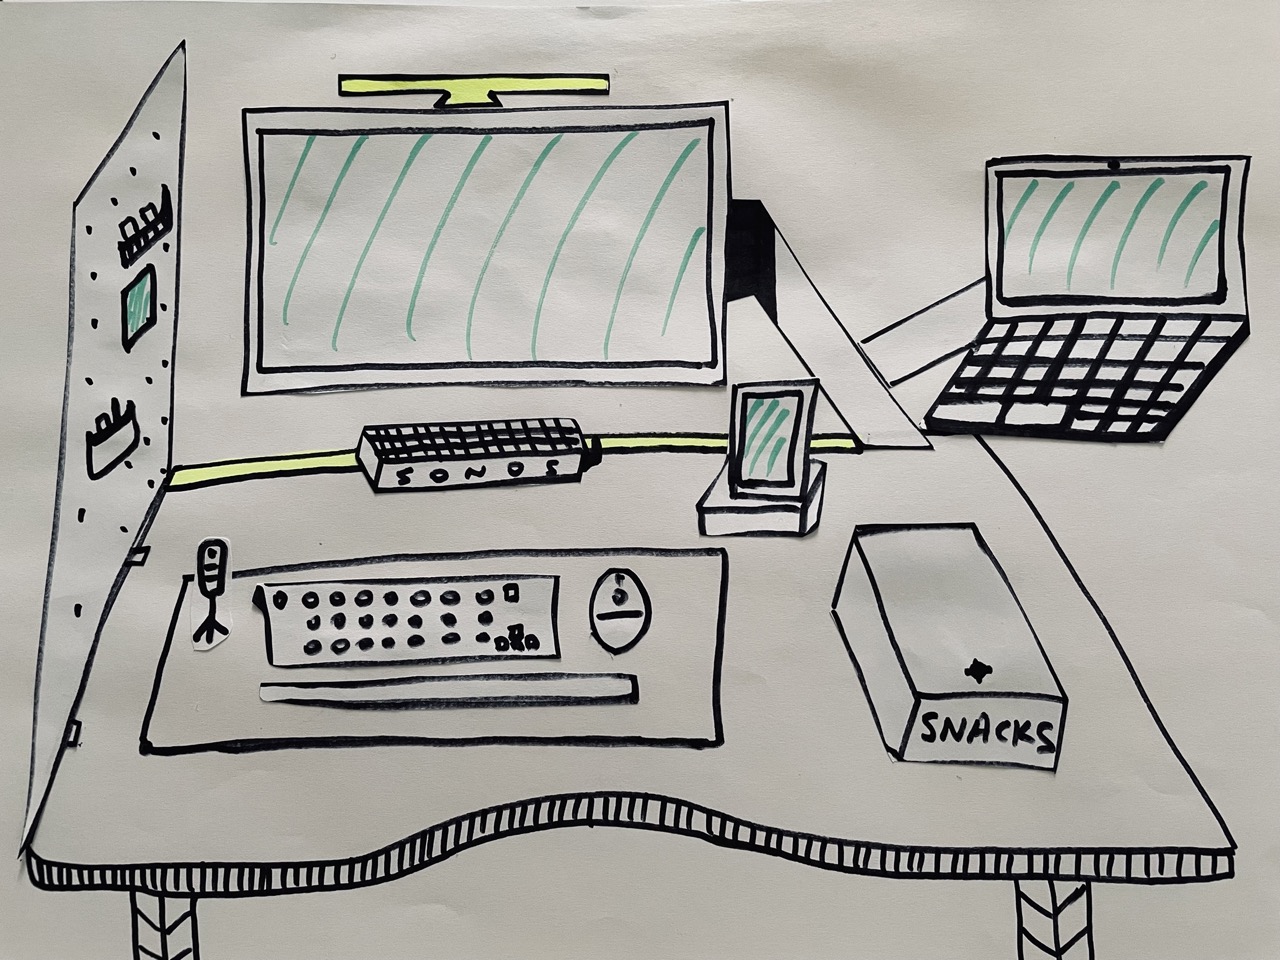 SONOS
SNACKS